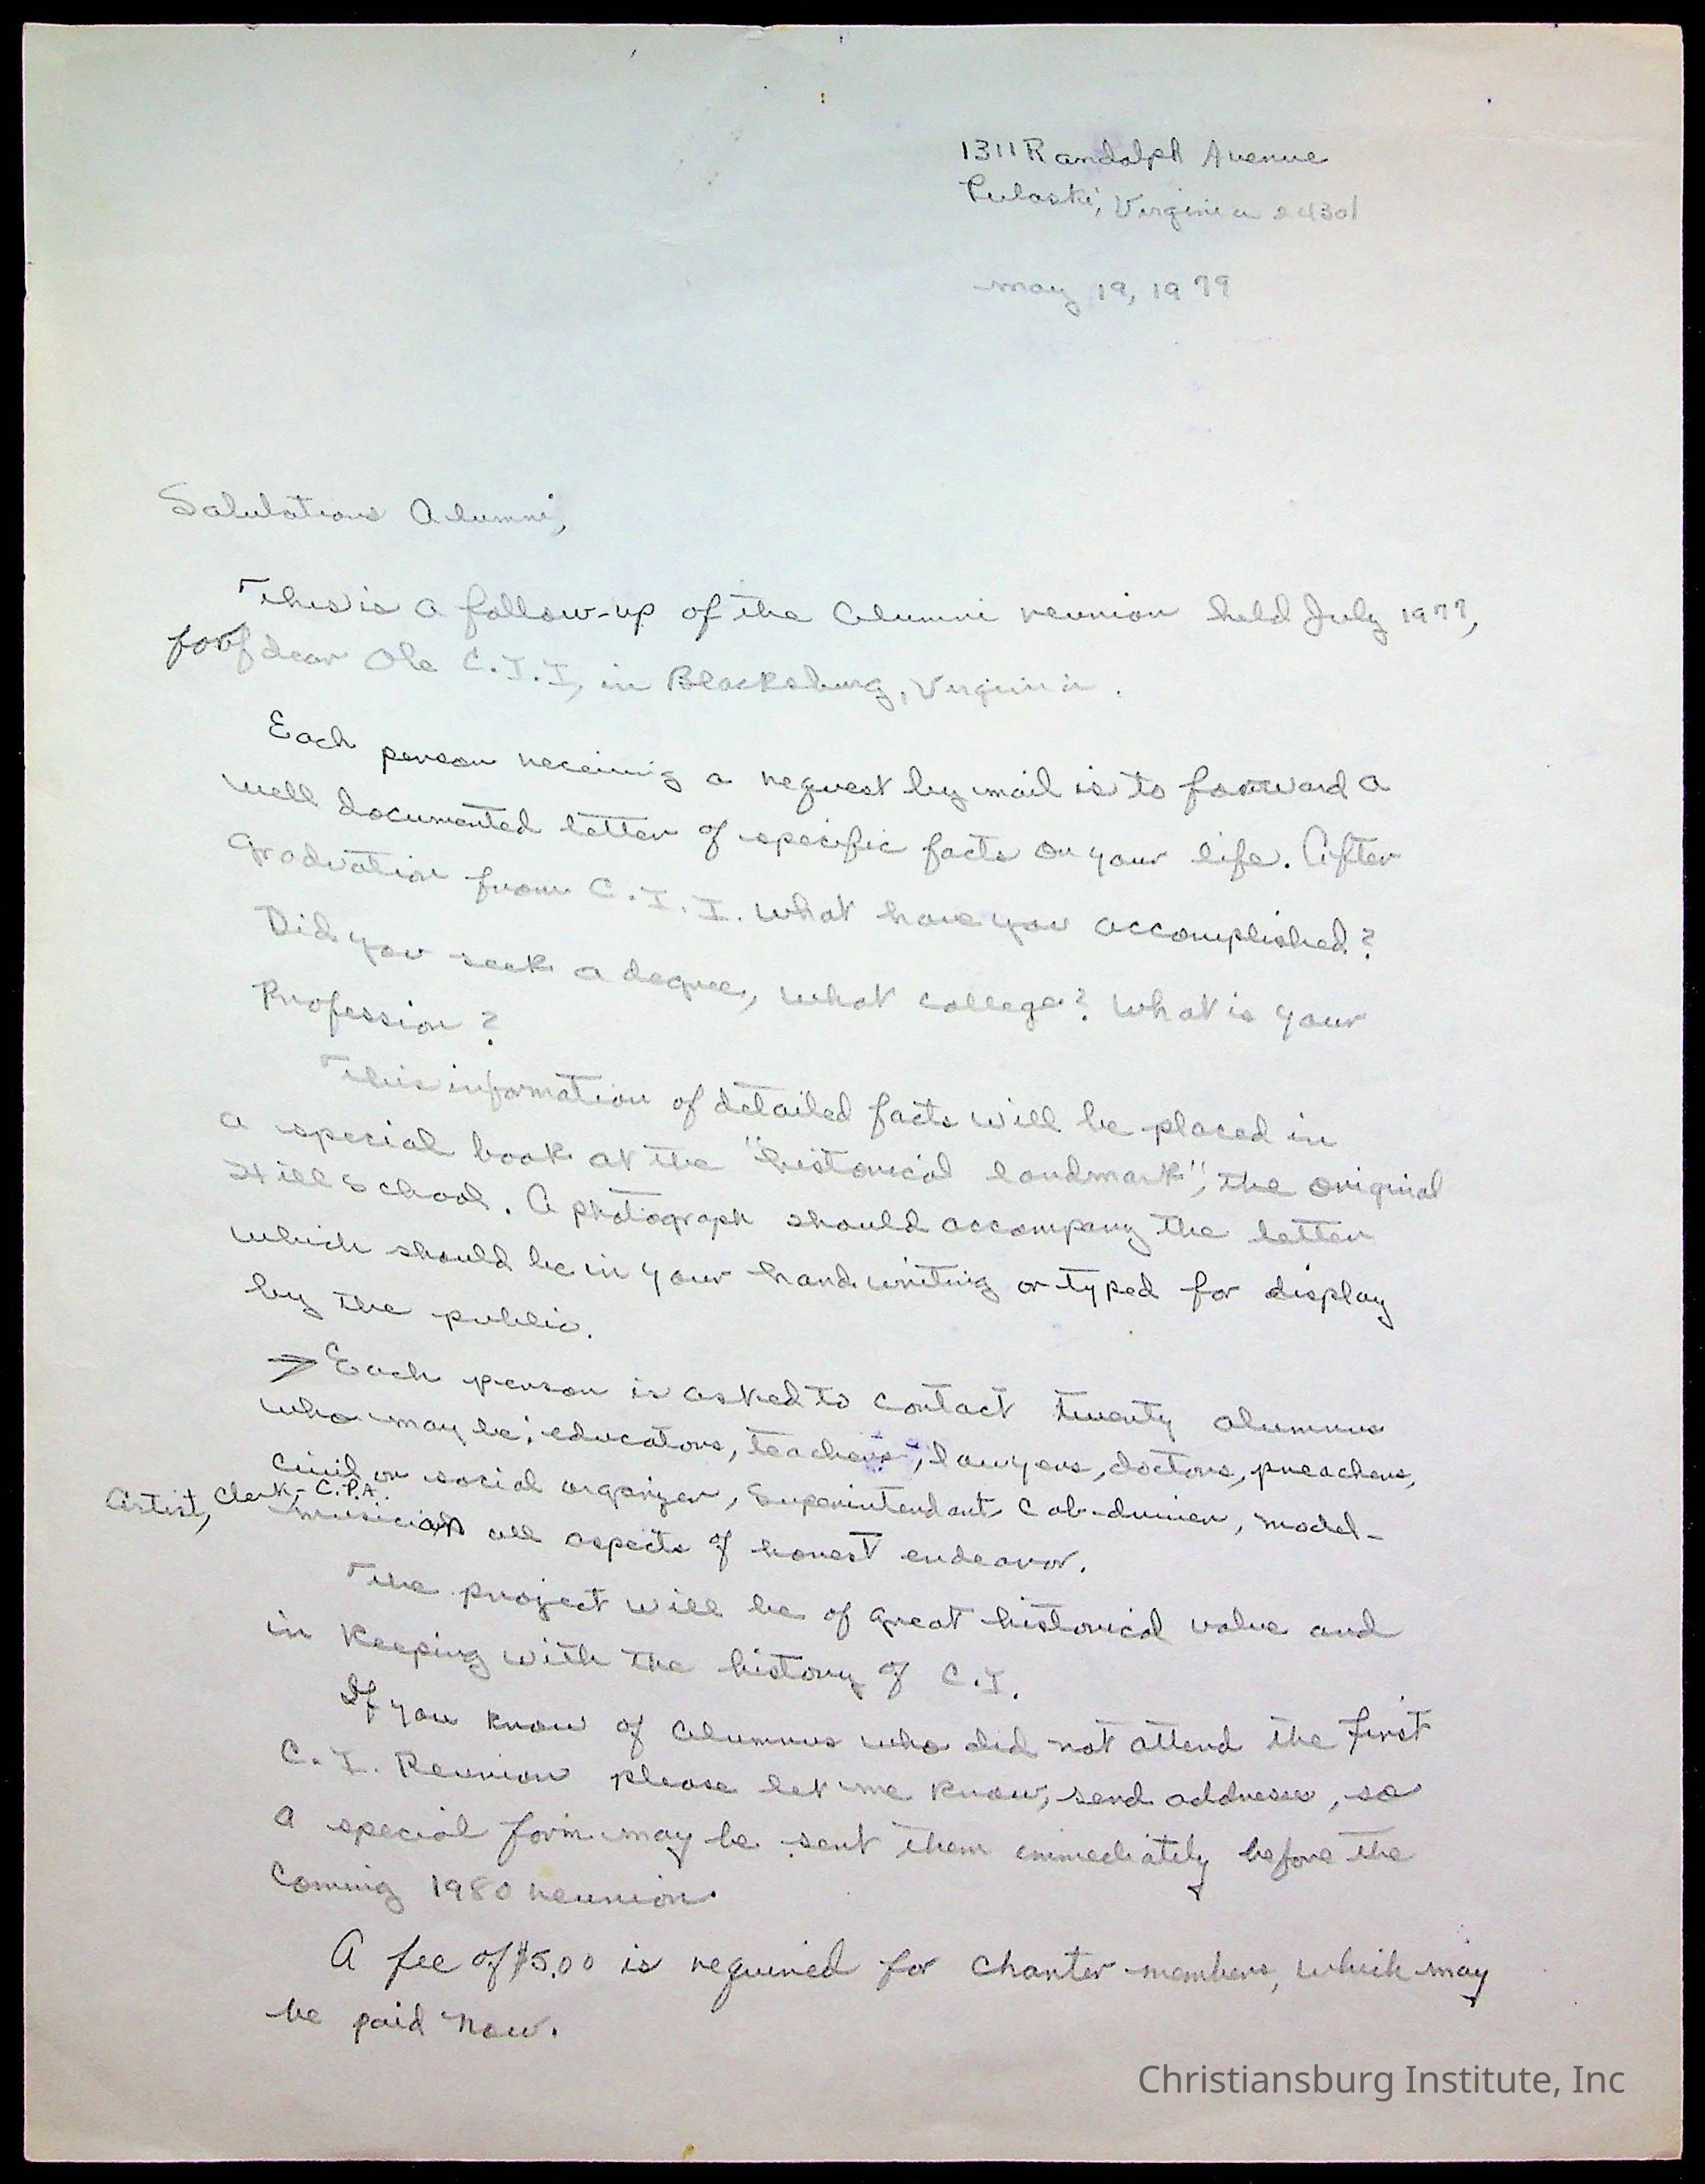 1311 Randolph Avenue
Pulaski, Virginia 24301
May 19, 1979
Salutations Alumni,
This is a follow-up of the Alumni reunion held July 1977,
for dear Ole C.I.I, in Blacksburg, Virginia.
Each person receiving a request by mail is to forward a
well documented letter of specific facts on your life. After
Graduation from C.I.I. what have you accomplished?
Did you seek a degree, what college? What is your
Profession?
This information of detailed facts will be placed in
a special book at the "historical landmark", the original
Hill School. A photograph should accompany the letter
which should be in your handwriting or typed for display
by the public.
→ Each person is asked to contact twenty alumnus
who may be; educators, teachers, lawyers, doctors, preachers,
civil or social organizer, Superintendant Cab-driver, model-
Artist, Clerk-C.P.A.
musician all aspects of honest endeavor.
The project will be of great historical value and
in keeping with the history of C.I.
If you know of alumnus who did not attend the first
C.I. Reunion please let me know, send addresses, so
a special form may be sent them immediately before the
coming 1980 reunion.
A fee of $5.00 is required for charter members, which may
be paid now.
Christiansburg Institute, Inc